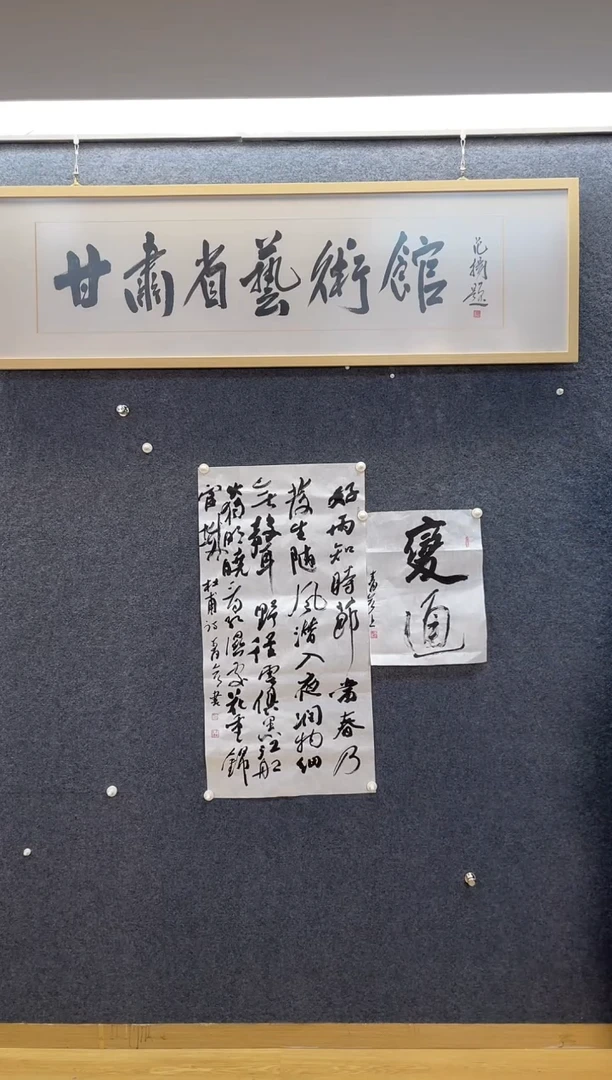 甘肅省藝術館
題
好雨知時節當春乃
發生随風潜入夜潤物細
無聲野徑雲俱黑江船
火獨明曉看紅濕處花重錦
官城 杜甫诗 書
變通